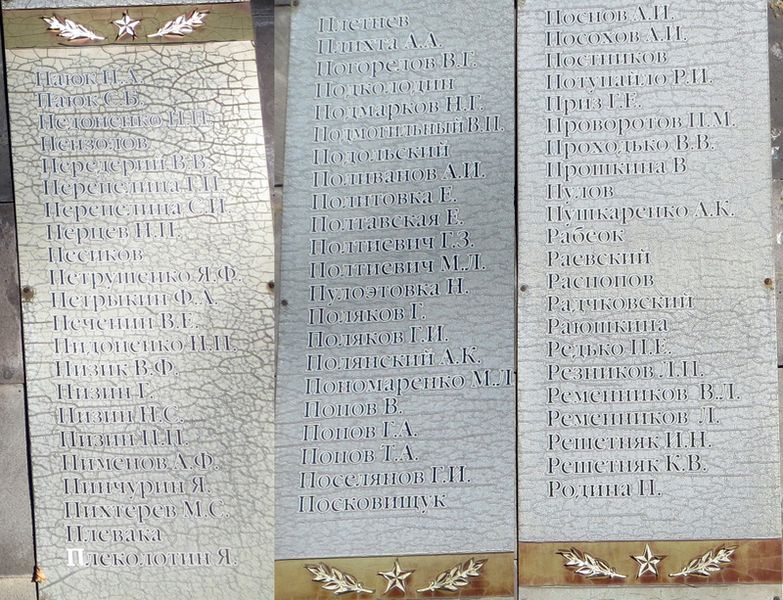 Паюк П.А.
Паюк С.Б.
Педоненко Н.П.
Пензолов
Передерий В.В.
Перепелица Г.П.
Перепелица С.И.
Перцев Н.П.
Песиков
Петрушенко Я.Ф.
Петрыкин Ф.А.
Печений В.Е.
Пидоненко Н.П.
Пизик В.Ф.
Пизин Г.
Пизин Н.С.
Пизин П.П.
Пименов А.Ф.
Пинчурин Я.
Пихтерев М.С.
Плевака
Плеколотин Я.
Плетнев
Плихта А.А.
Погорелов В.Г.
Подколодин
Подмарков Н.Г.
Подмогильный В.П.
Подольский
Поливанов А.И.
Политовка Е.
Полтавская Е.
Полтиевич Г.З.
Полтиевич М.Л.
Пулоэтовка Н.
Поляков Г.
Поляков Г.И.
Полянский А.К.
Пономаренко М.Л
Попов В.
Попов Г.А.
Попов Т.А.
Поселянов Г.И.
Посковищук
Поснов А.И.
Посохов А.И.
Постников
Потунайло Р.И.
Приз Г.Е.
Проворотов П.М.
Проходько В.В.
Прошкина В
Пулов
Пушкаренко А.К.
Рабеок
Раевский
Распопов
Радчковский
Раюшкина
Редько П.Е.
Резников Л.П.
Ременников В.Л.
Ременников Л.
Решетняк И.Н.
Решетняк К.В.
Родина П.